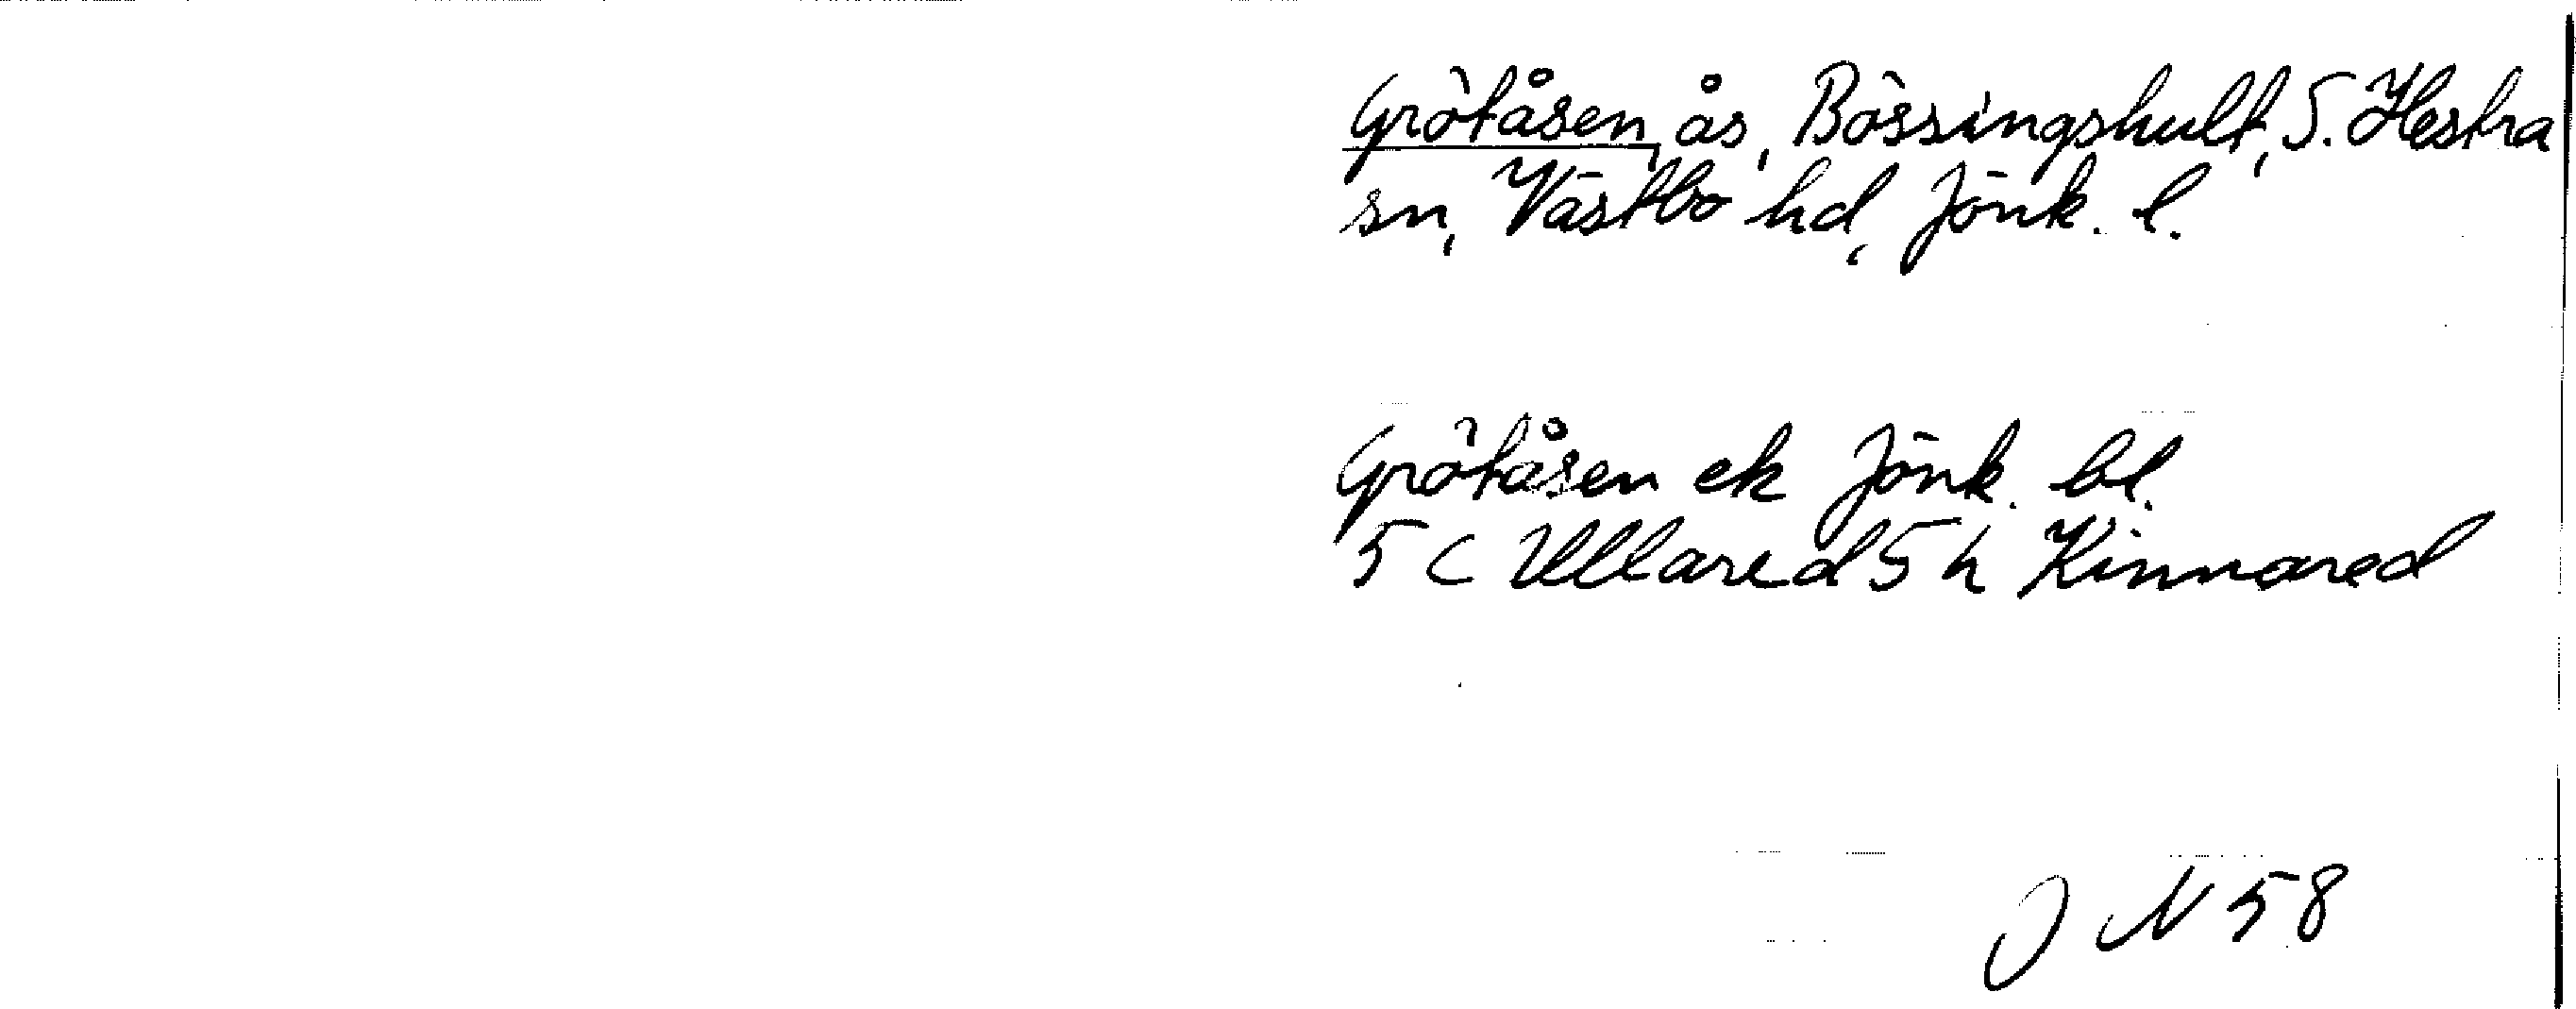 Grötåsen, ås, Bössingshult, S. Hestra
sn, Västbo hd, Jönk. l.
Grötåsen ek Jönk. bl.
5 C Ullared 5 h Kinnared
J N 58